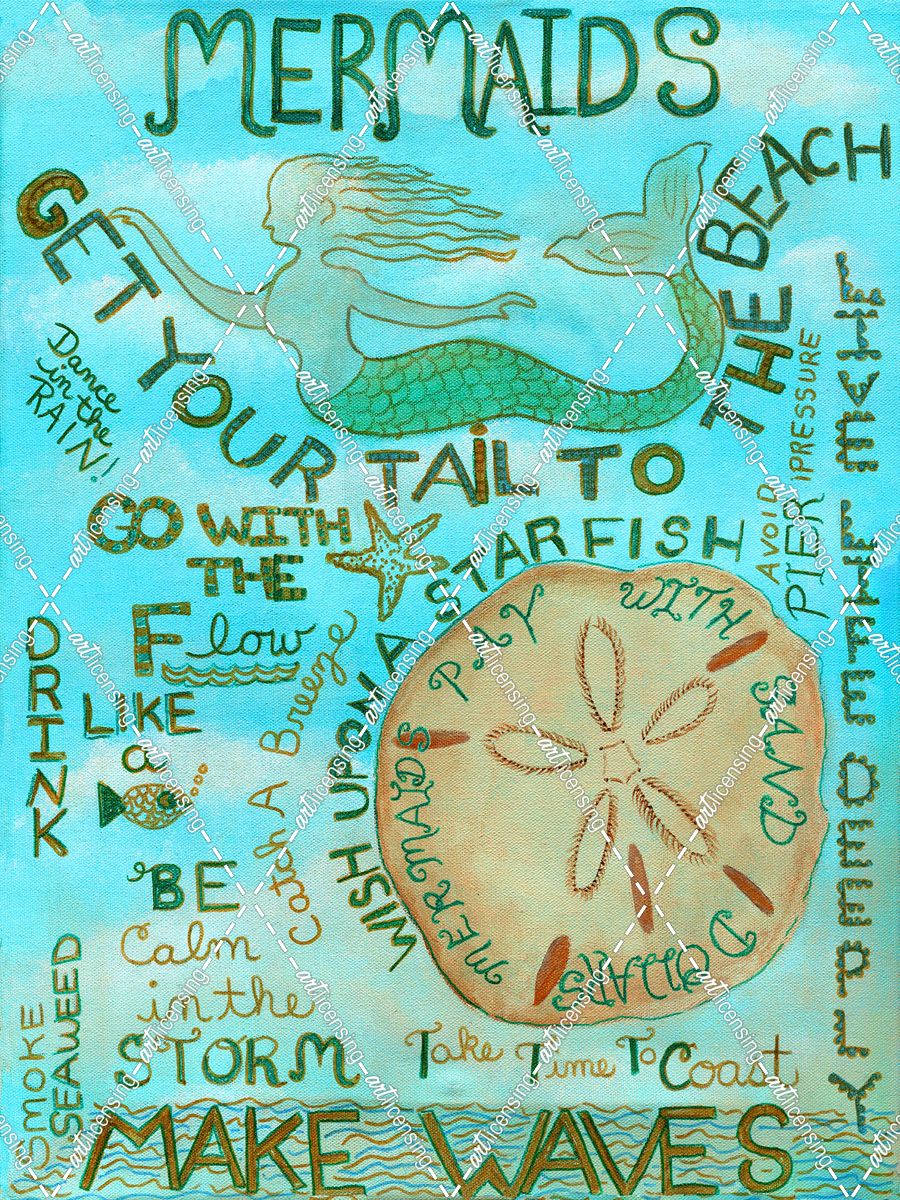 MERMAIDS
GET YOUR TAIL TO THE BEACH
Dance
in the
RAIN!
AVOID
PIER PRESSURE
GO WITH
THE
Flow
WISH UPON A STARFISH
MERMAIDS PLAY WITH SAND DOLLARS
DRINK
LIKE
a
Catch A Breeze
BE
Calm
in the
STORM
SMOKE
SEAWEED
Take Time To Coast
MAKE WAVES